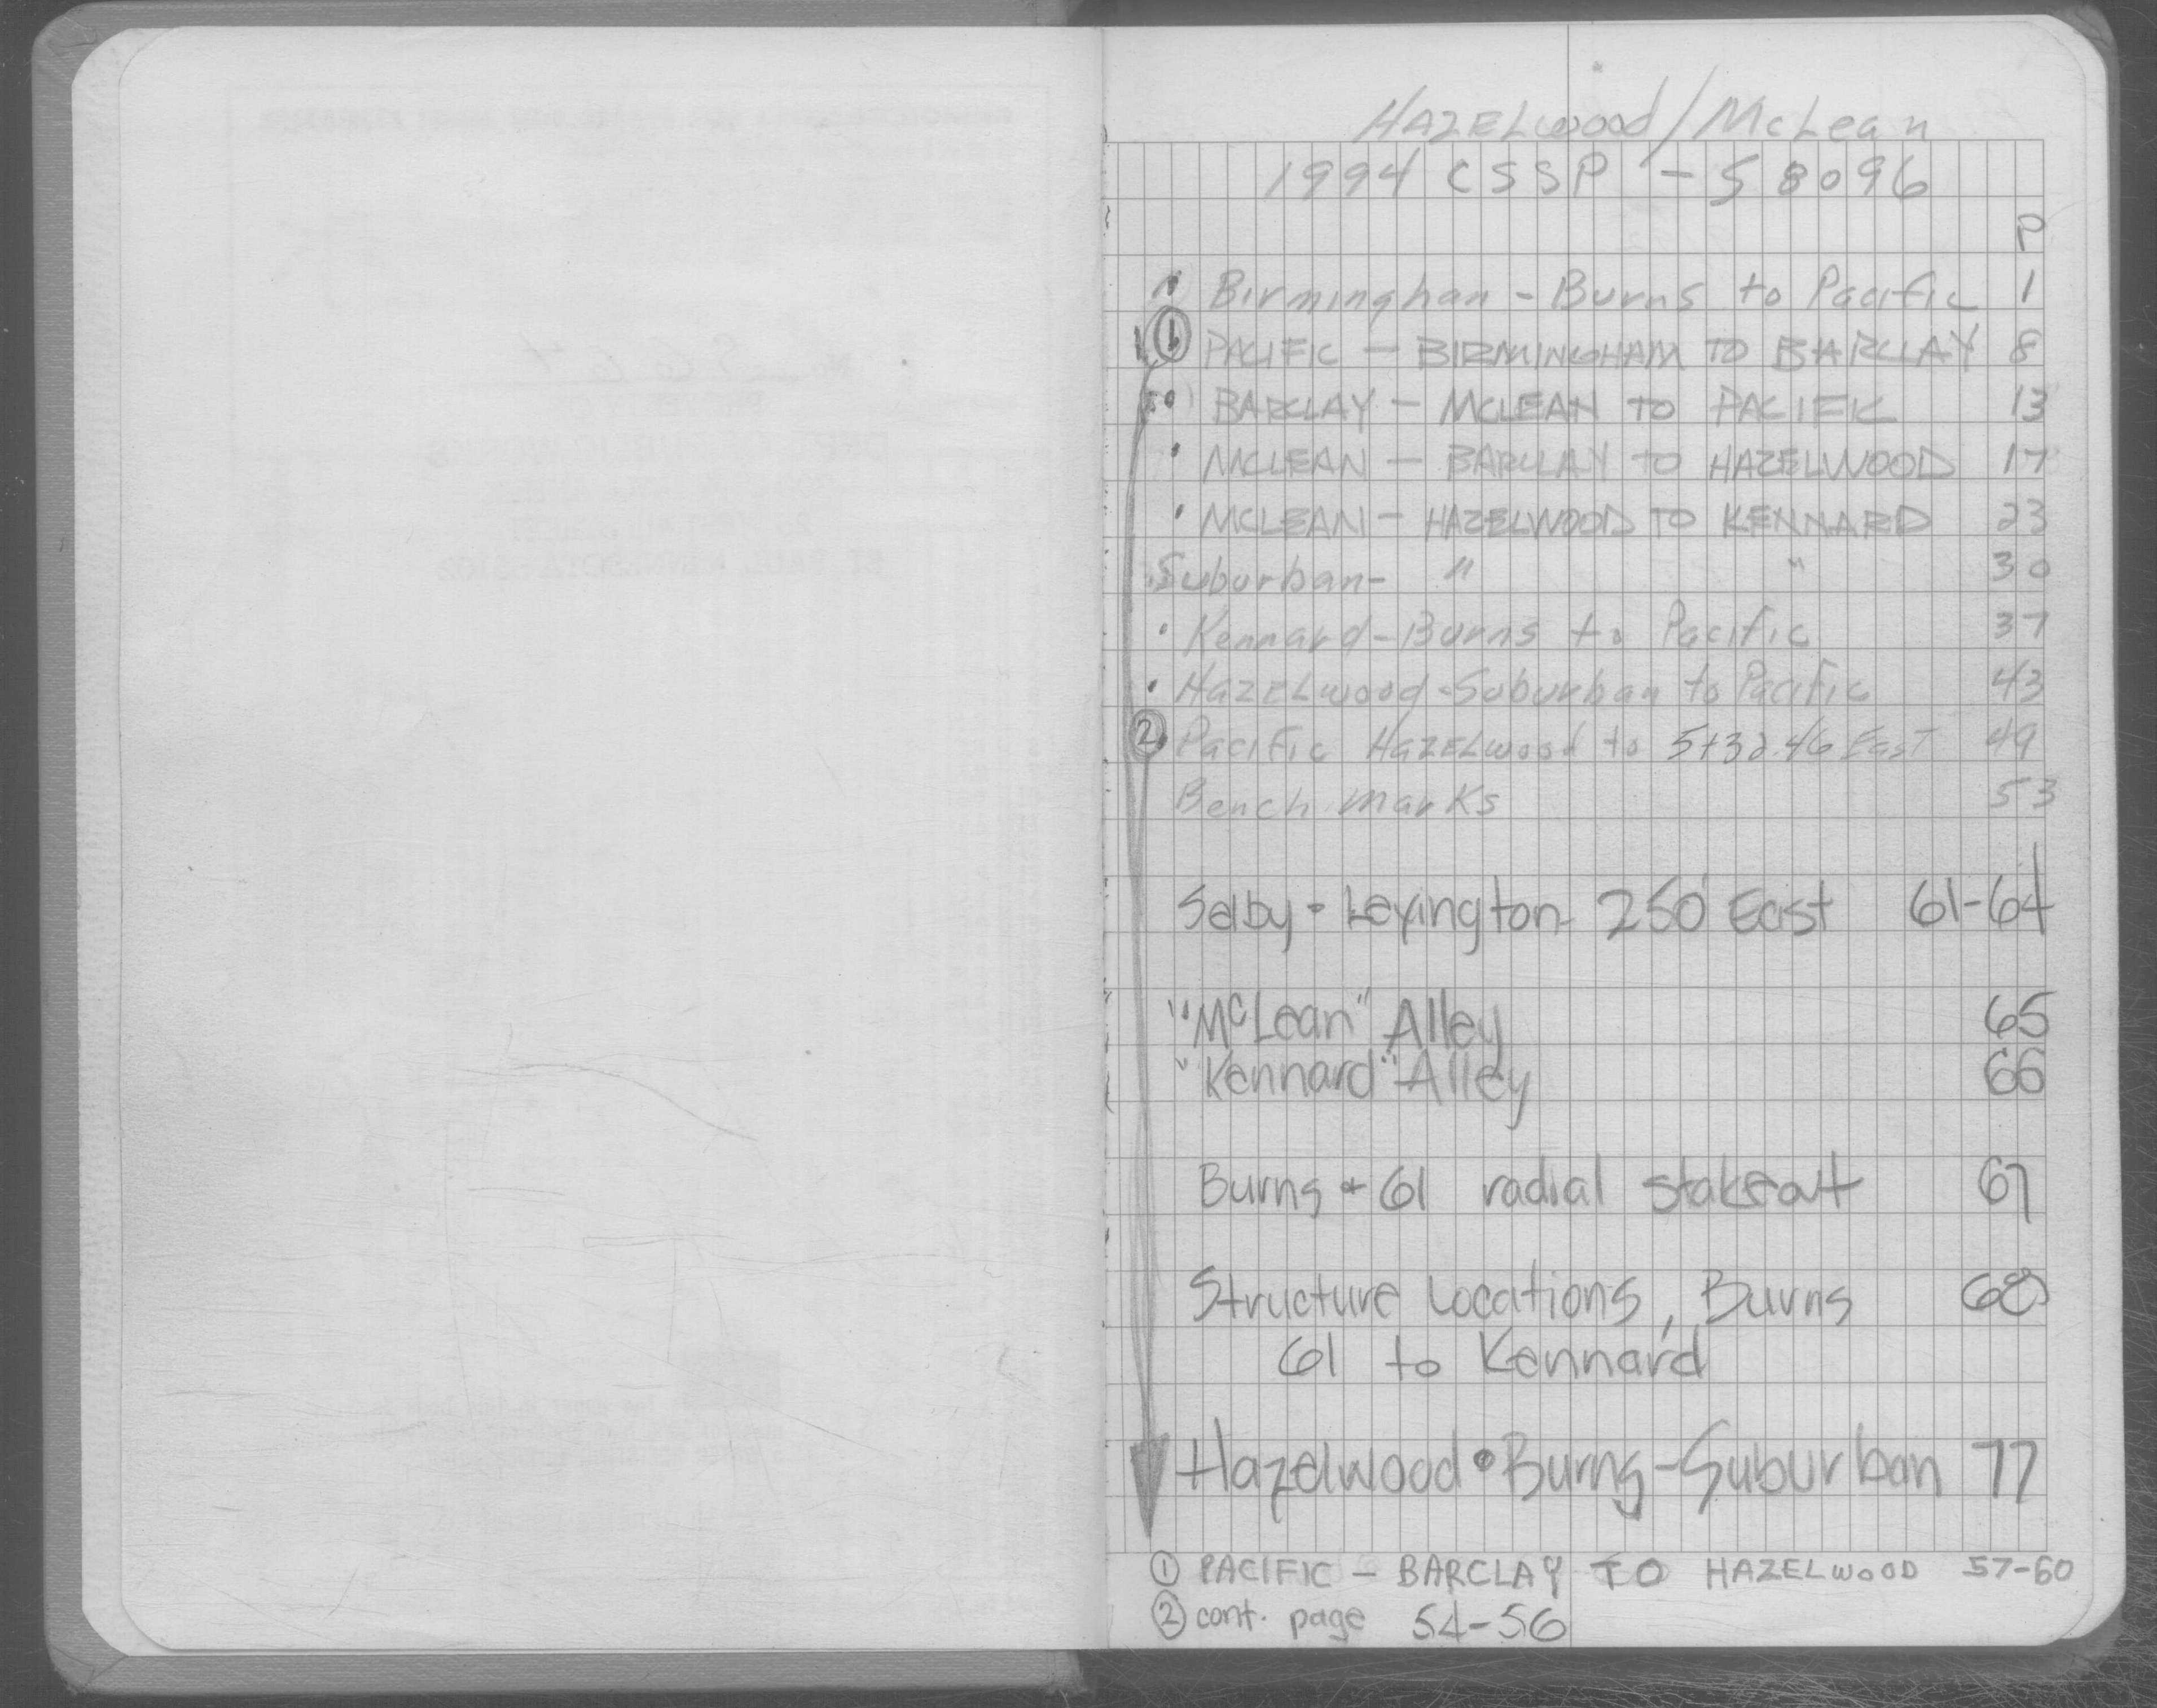 HAZELwood/McLean
1994 CSSP - S 8096
P
Birminghan - Burns to Pacific 1
① PACIFIC - BIRMINGHAM TO BARCLAY 8
BARCLAY - MCLEAN TO PACIFIC 13
MCLEAN - BARCLAY TO HAZELWOOD 17
MCLEAN - HAZELWOOD TO KENNARD 23
Suburban - " " 30
Kennard - Burns to Pacific 37
Hazelwood - Suburban to Pacific 43
② Pacific Hazelwood to 5+32.46 East 49
Bench Marks 53
Selby - Lexington - 250' East 61-64
"McLean" Alley 65
"Kennard" Alley 66
Burns + 61 radial stakeout 67
Structure Locations, Burns 68
61 to Kennard
Hazelwood • Burns - Suburban 77
① PACIFIC - BARCLAY TO HAZELWOOD 57-60
② cont. page 54-56